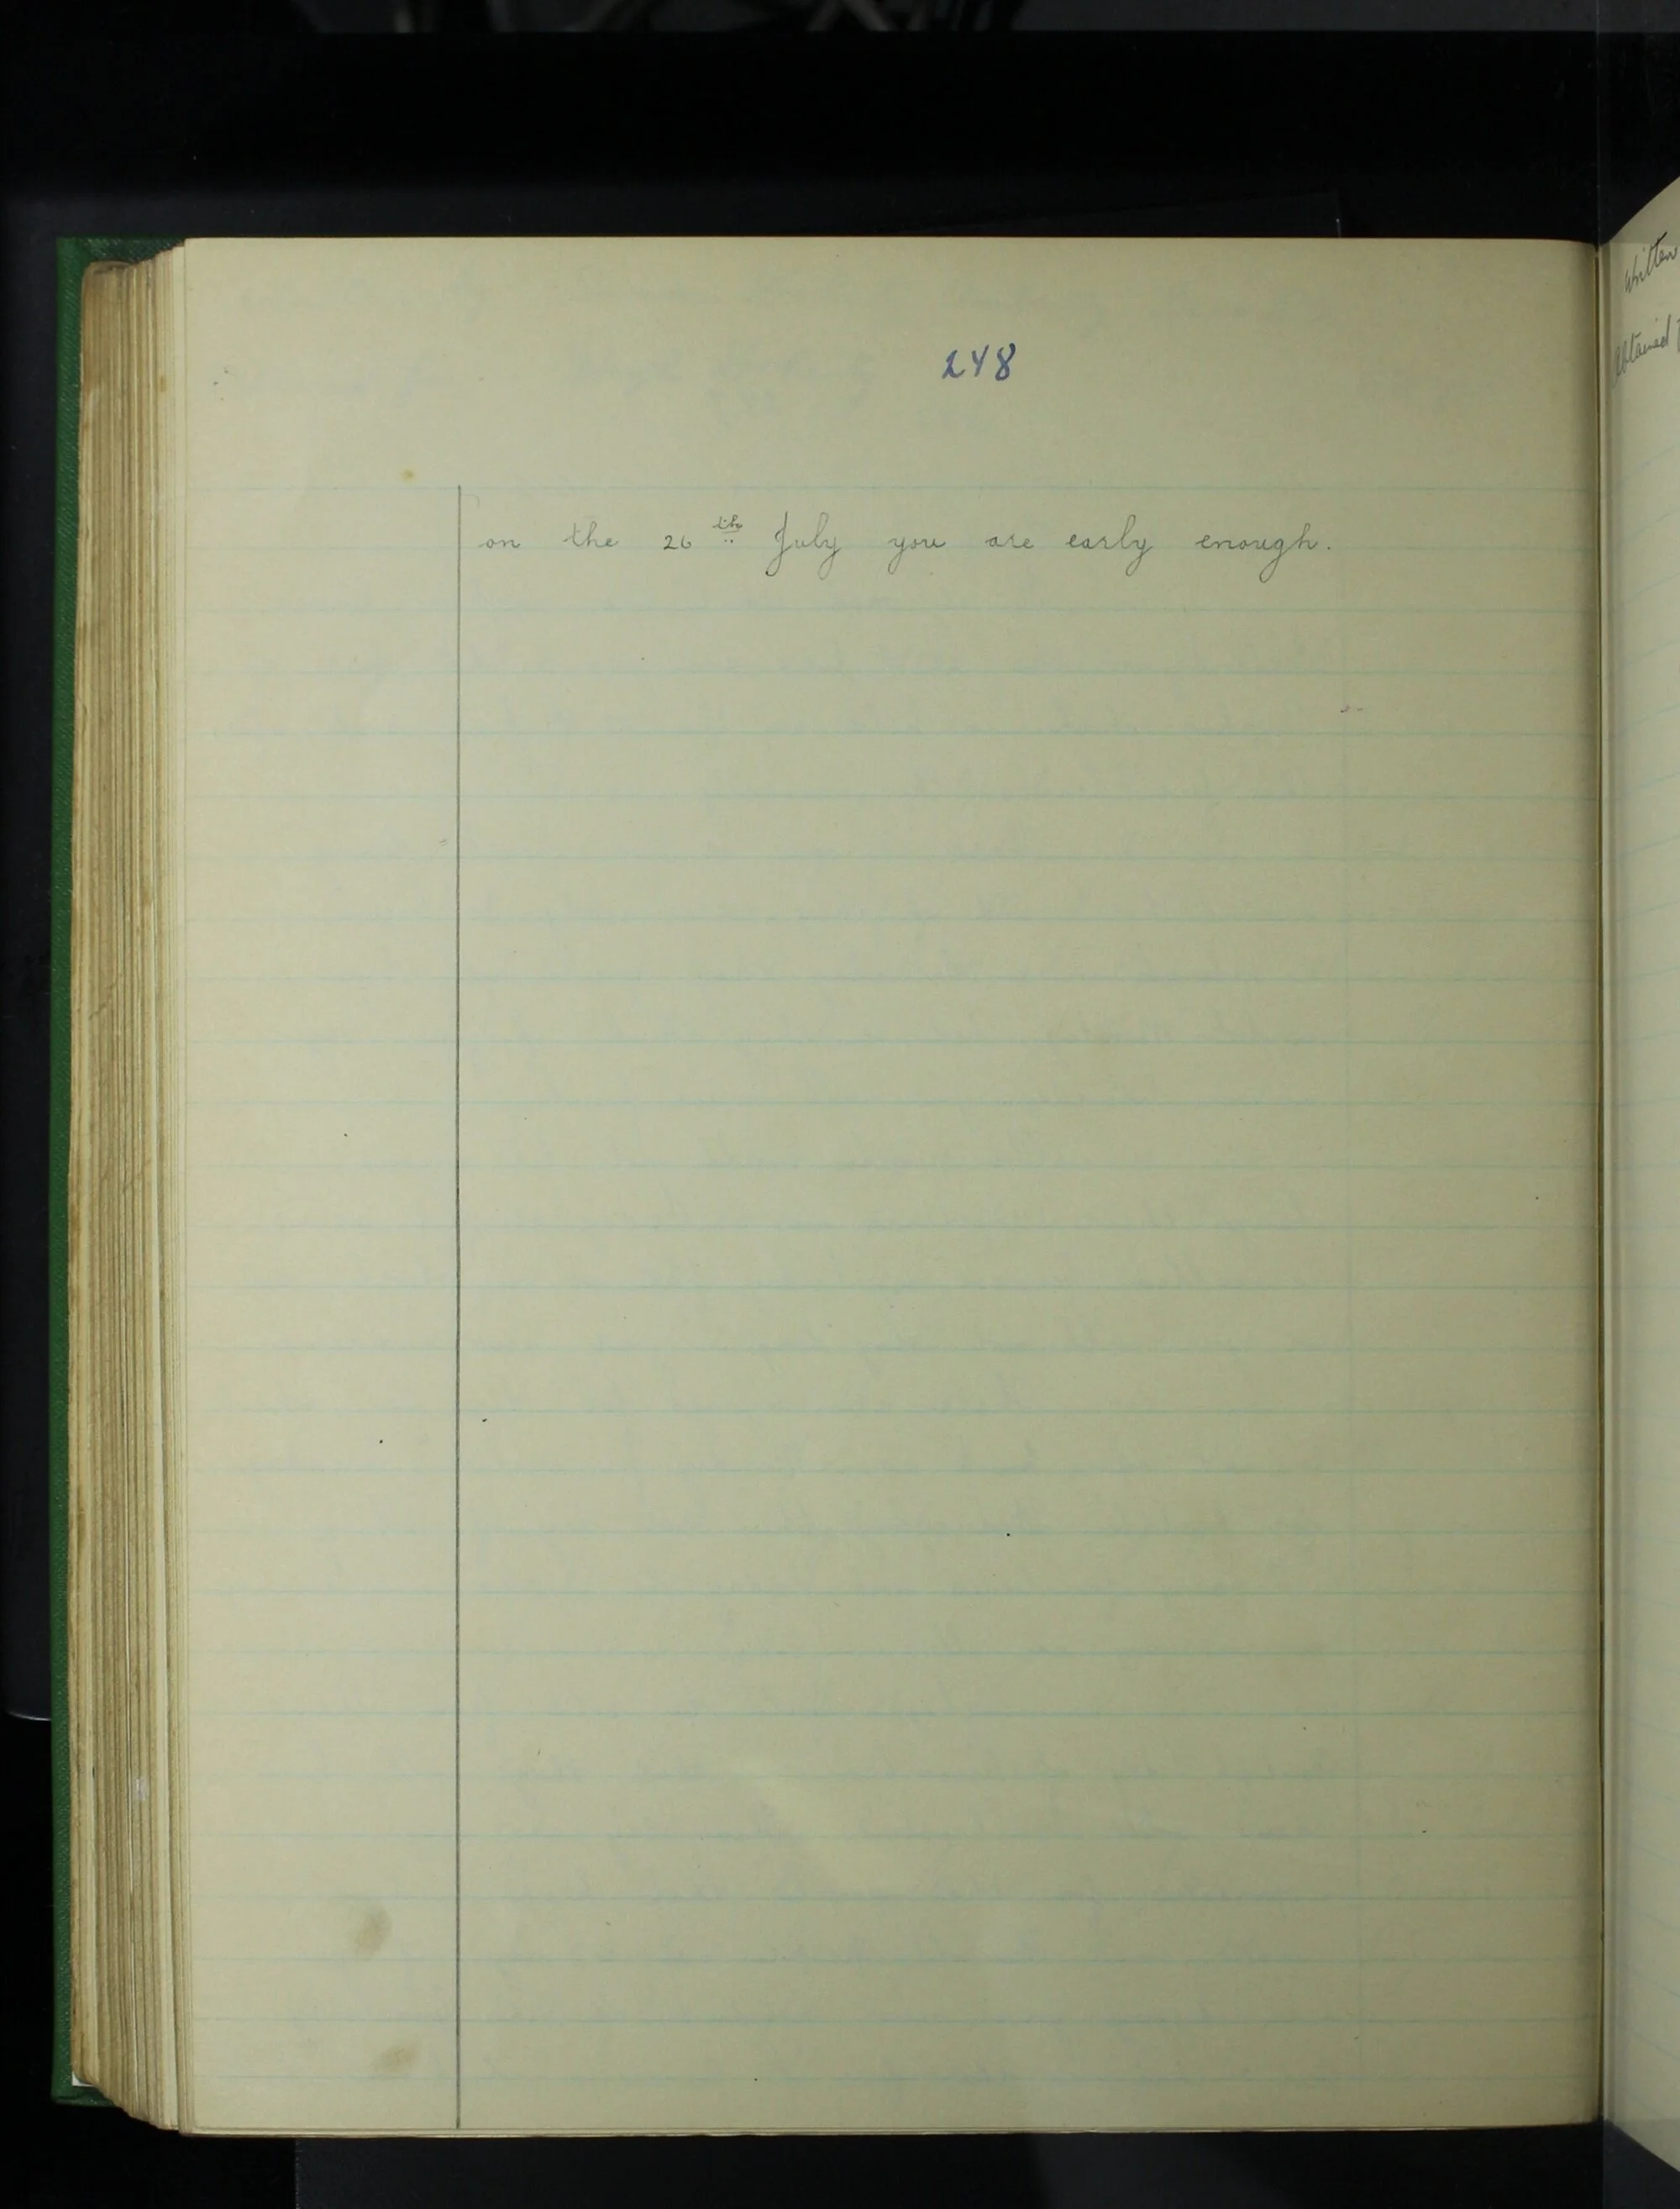 248
on the 26th July you are early enough.
Written
Obtained